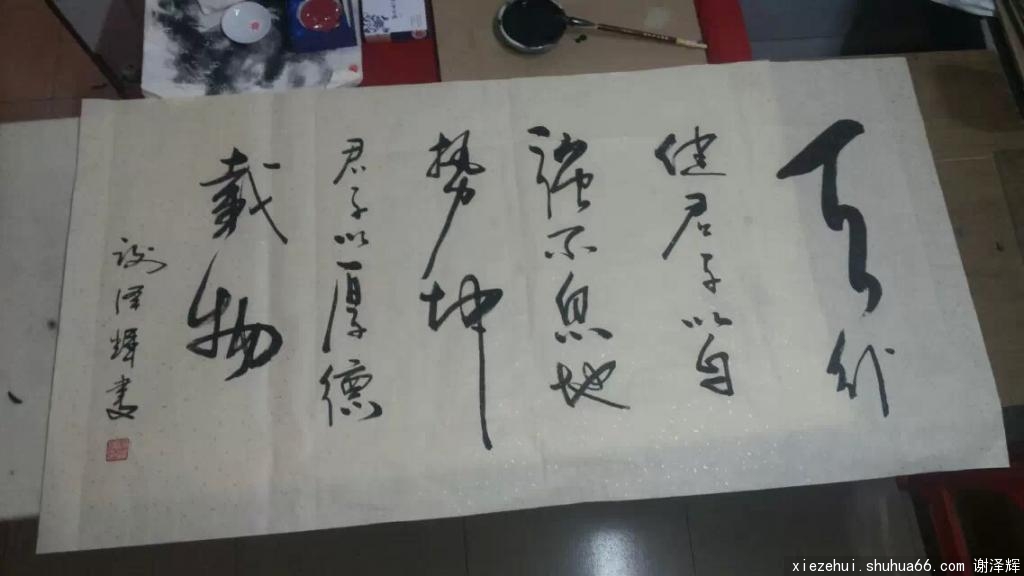 天行
健君子以自
强不息地
势坤
君子以厚德
载物
谢泽辉书
xiezehui.shuhua66.com 谢泽辉